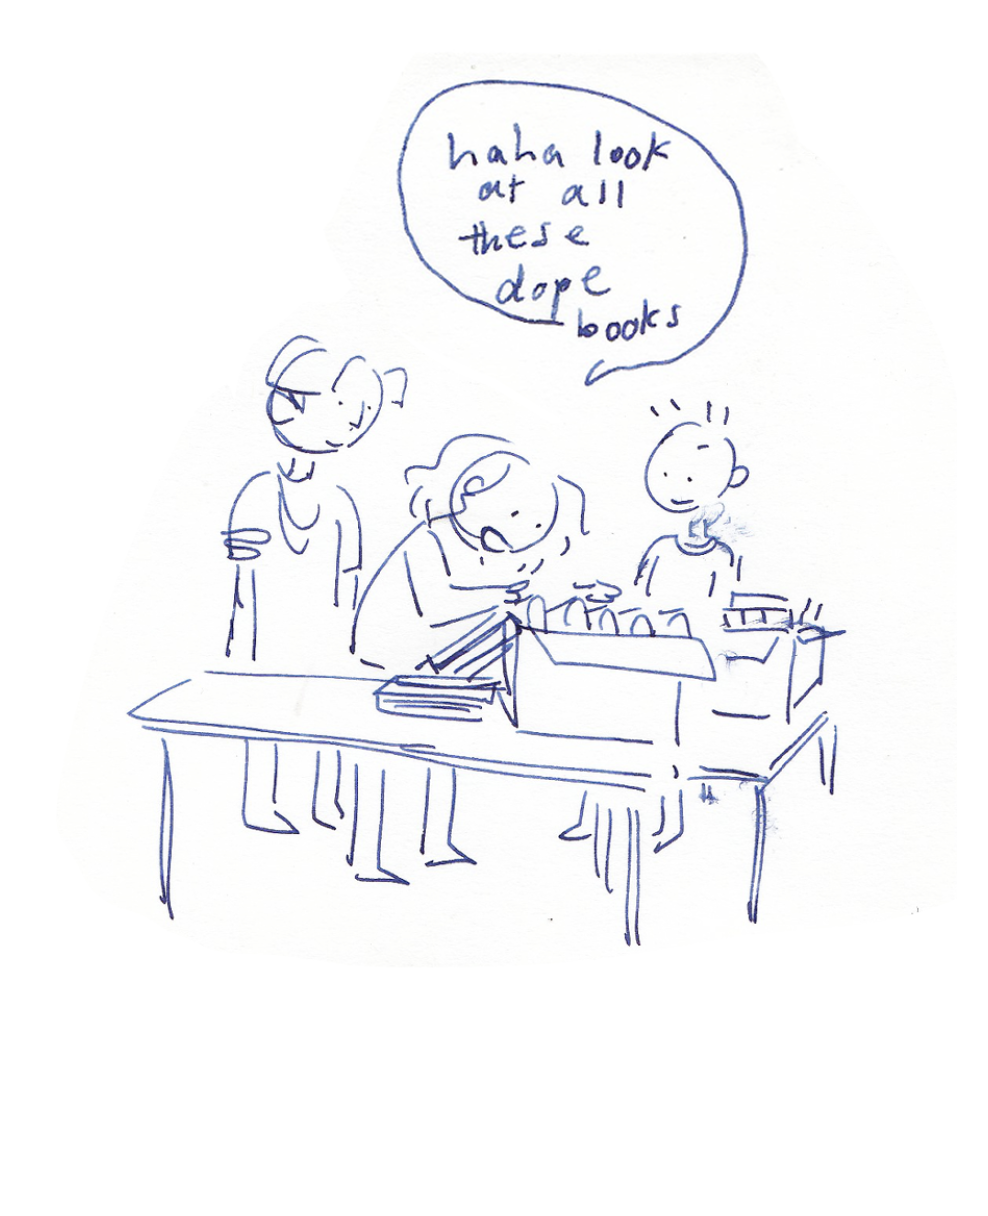 haha look
at all
these
dope
books